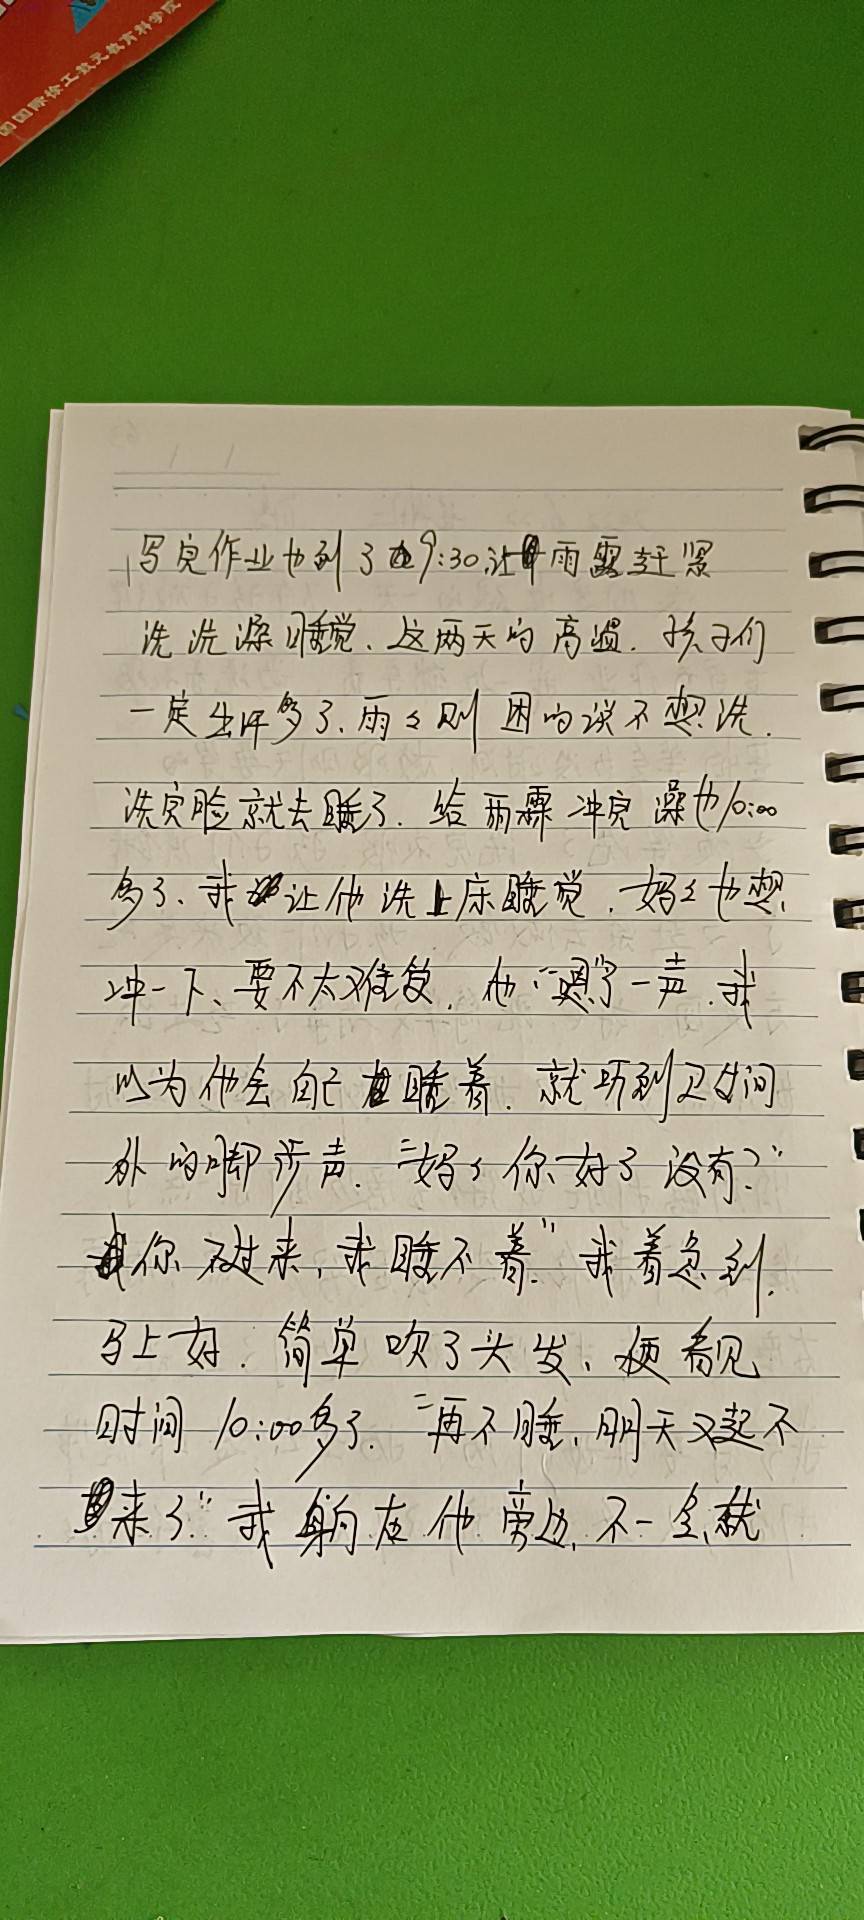 国国际徐工数元教育科学院
写完作业也到了9:30让雨露赶紧
洗洗澡睡觉、这两天的高温.孩子们
一定出汗多了、雨々则困的说不想洗.
洗完脸就去睡了.给雨霖冲完澡也10:00
多了、我让他洗上床睡觉.妈々也想
冲一下、要不太难受.他“嗯”了一声.我
以为他会自己睡着.就听到卫生间
外的脚步声.“妈々你好了没有?”
你不过来,我睡不着.”我着急到.
马上好.简单吹了头发、便看见
时间10:00多了.“再不睡,明天又起不
来了”我躺在他旁边,不一会就